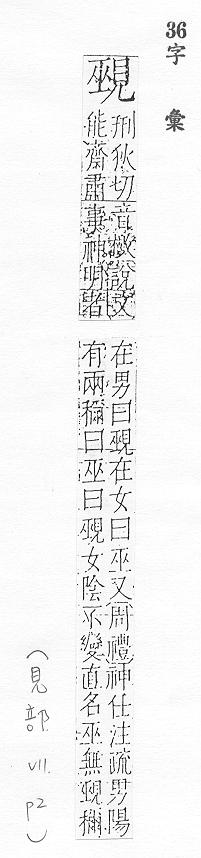 36字彙
覡
刑狄切音檄說文
能齋肅事神明者
在男曰覡在女曰巫又周禮神仕注疏男陽
有兩稱曰巫曰覡女陰不變直名巫無覡稱
(見部 VII. p2)